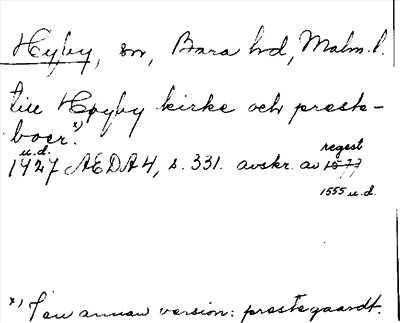 Hyby, sn, Bara hd, Malm. l.
till Høyby kirke och preste-
boer.x)
u.d. regest
1427 AEDA 4, s. 331. avskr. av 1577
1555 u.d.
x) I en annan version: prestegaardt.